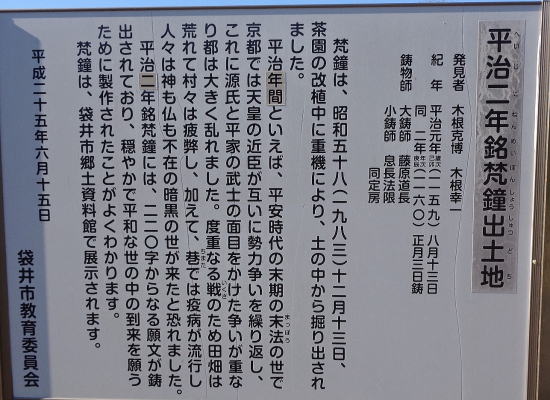 平治二年銘梵鐘出土地
へいじにねんめいぼんしょうしゅつどち
発見者 木根克博 木根幸一
紀年 平治元年歳次己卯(一一五九)八月十三日
同 二年歳次庚辰(一一六〇)正月三日鋳
鋳物師 大鋳師 藤原道長
小鋳師 息長法限
同定房
梵鐘は、昭和五十八(一九八三)十二月十三日、
茶園の改植中に重機により、土の中から掘り出され
ました。
平治年間といえば、平安時代の末期の末法の世で
まっぽう
京都では天皇の近臣が互いに勢力争いを繰り返し、
これに源氏と平家の武士の面目をかけた争いが重な
り都は大きく乱れました。度重なる戦のため田畑は
いくさ
荒れて村々は疲弊し、加えて、巷では疫病が流行し
ちまた
人々は神も仏も不在の暗黒の世が来たと恐れました。
平治二年銘梵鐘には、二二〇字からなる願文が鋳
出されており、穏やかで平和な世の中の到来を願う
ために製作されたことがよくわかります。
梵鐘は、袋井市郷土資料館で展示されます。
平成二十五年六月十五日
袋井市教育委員会